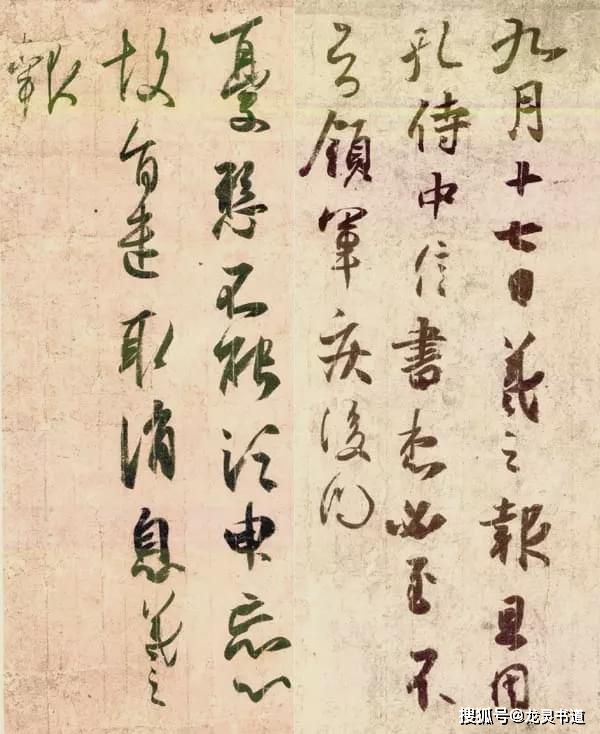 九月十七日羲之報且因
孔侍中信書想必至不
知領軍疾後問
憂懸不能須臾忘心
故旨遣取消息羲之
報
搜狐号@龙灵书道